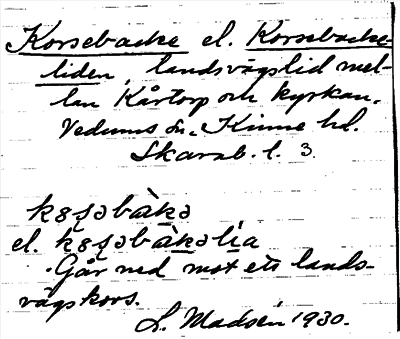 Korsebacke el. Korsebacke-
liden, landsvägslid mel-
lan Kårtorp och kyrkan.
Vedums sn. Kinne hd.
Skarab. l. 3.
el.
Går ned mot ett lands-
vägskors.
L. Madsén 1930.